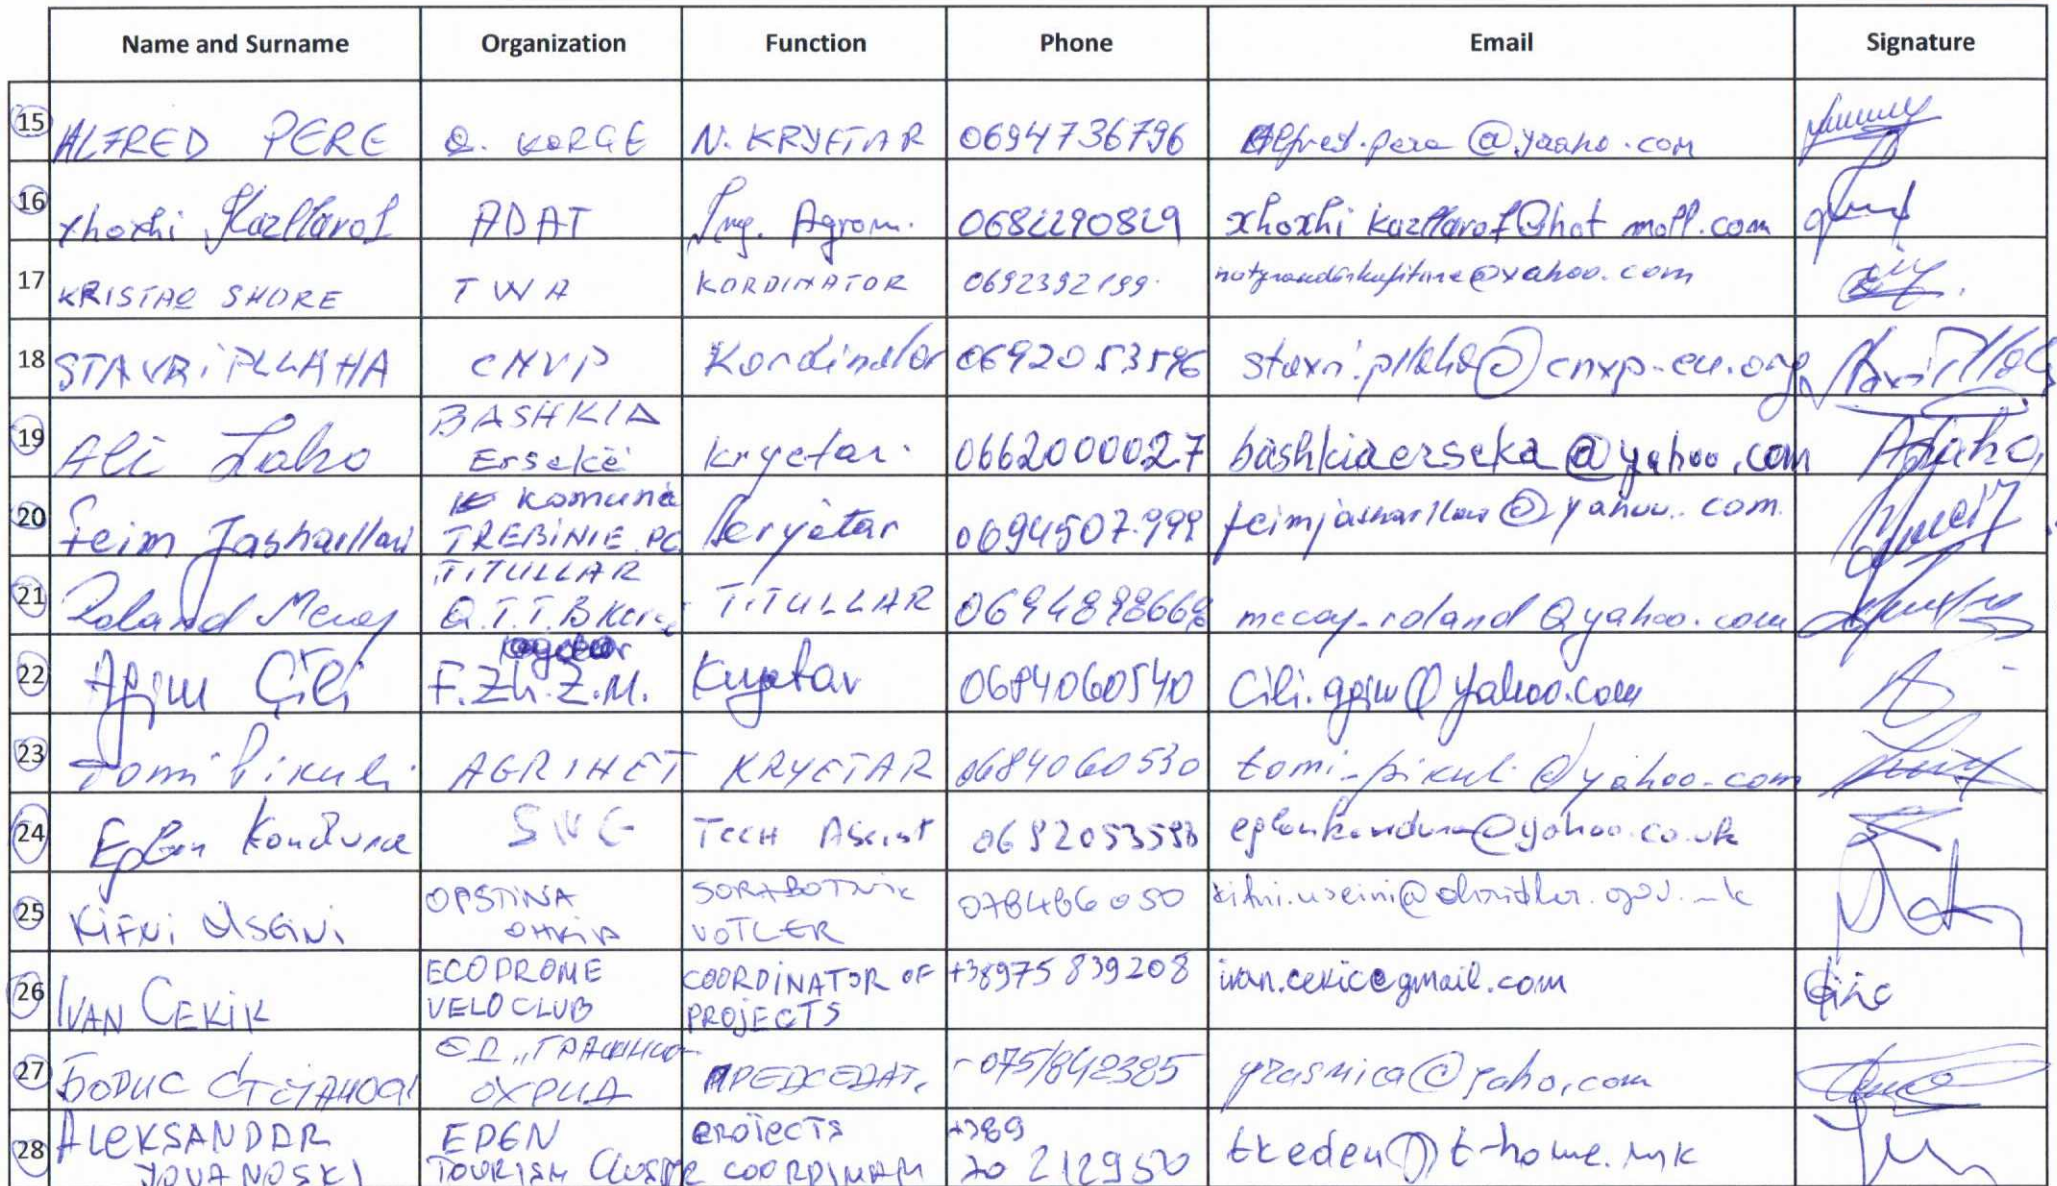 Name and Surname Organization Function Phone Email Signature
15 ALFRED PERE Q. KORCE N. KRYETAR 0694736796 Alfred.pere@yaaho.com
16 xhoxhi Kazllarof ADAT Ing. Agrom. 0682290829 xhoxhi kazllarof@hot mall.com
17 KRISTAQ SHORE TWA KORDINATOR 0692392199
18 STAVRi PLLAHA CNVP Kordinator 0692053596 stavri.pllaha@cnvp-eu.org
19 Ali Laho BASHKIA Ersekë kryetar. 0662000027 bashkiaerseka@yahoo.com
20 Feim Jashaillari Komuna TREBINIE PG kryetar 0694507.999
21 Roland Mecaj TITULLAR Q.T.T.B TITULLAR mecay-roland@yahoo.com
22 Agim Çili F.Zh.Z.M. Kryetar 0684060540 Cili.agim@yahoo.com
23 Tomi Pikuli AGRINET KRYETAR 0684060530 tomi-pikuli@yahoo.com
24 Eglon Kondura TECH Assist @yahoo.co.uk
25 OPSTINA OHRID SORABOTNIK 078486050
26 IVAN CEKiK ECODROME VELO CLUB COORDINATOR OF PROJECTS +38975 839208 ivan.cekic@gmail.com
27 ЕД „ГРАШНИЦА ОХРИД ПРЕДСЕДАТ. 075/842385 grasnica@yaho,com
28 ALEKSANDAR JOVANOSKI EDEN TOURISM CLUSTER PROJECTS COORDINATOR +389 70 212950 tkeden@t-home.mk